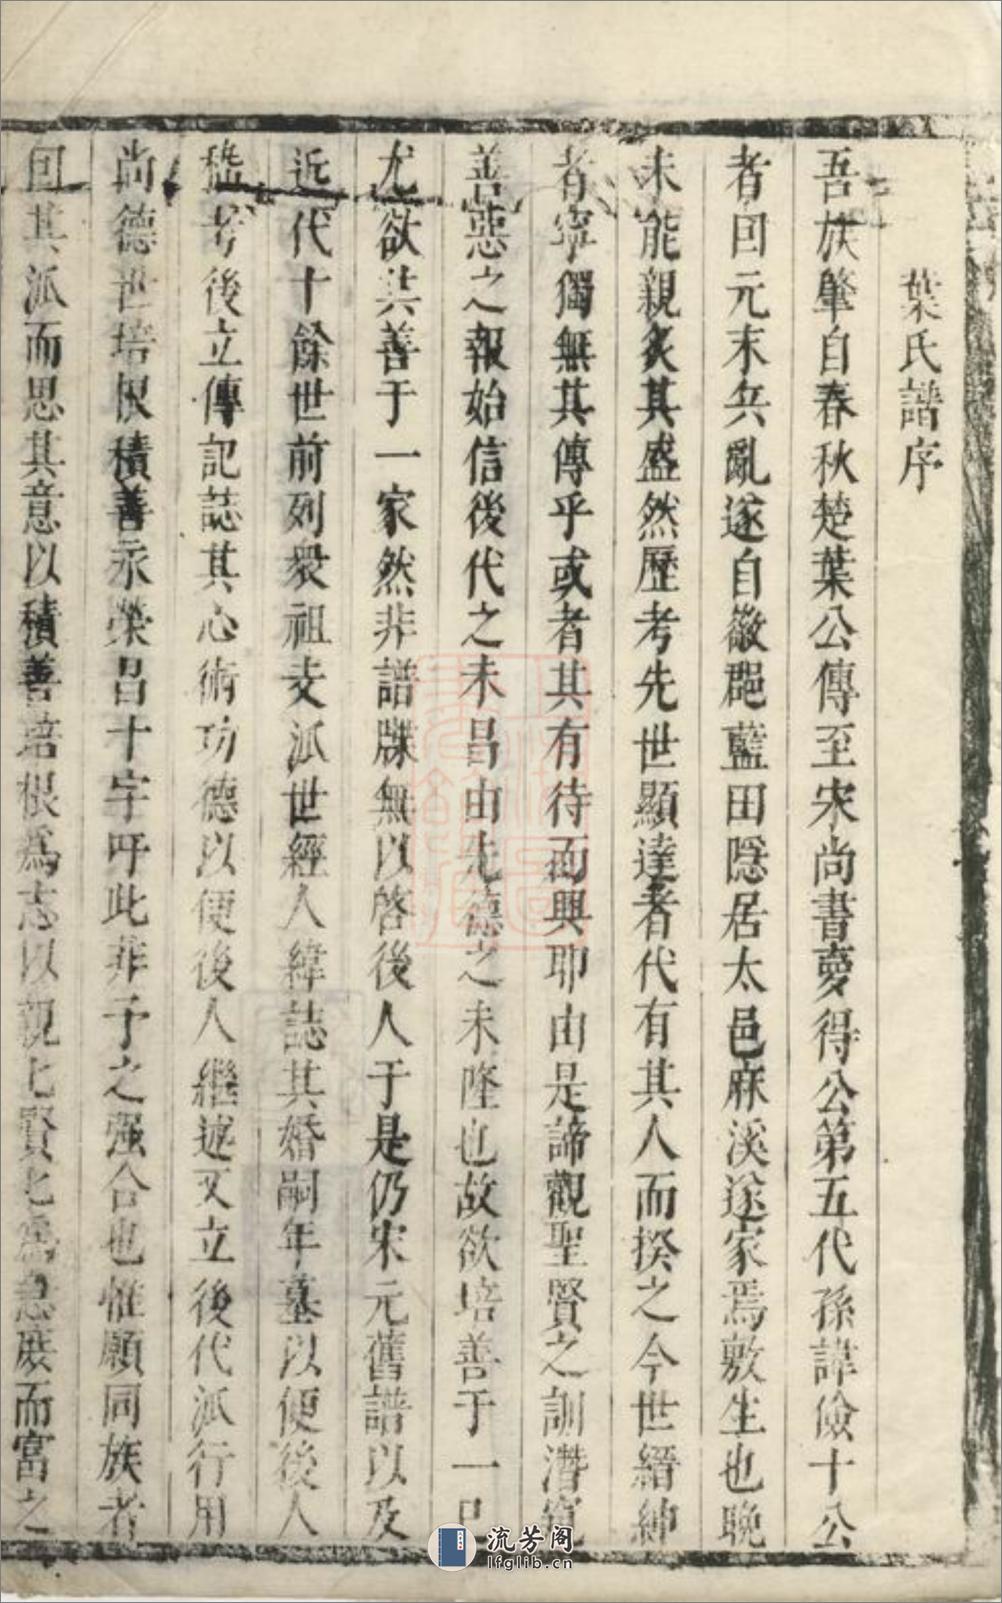 葉氏譜序
吾族肇自春秋楚葉公傳至宋尚書夢得公第五代孫諱儉十公
者回元末兵亂遂自徽郡藍田隱居太邑麻溪遂家焉敷生也晚
未能親炙其盛然歷考先世顯達者代有其人而揆之今世縉紳
者寧獨無其傳乎或者其有待而興耶由是諦觀聖賢之訓潛究
善惡之報始信後代之未昌由先德之未隆也故欲培善于一己
尤欲共善于一家然非譜牒無以啓後人于是仍宋元舊譜以及
近代十餘世前列衆祖支派世經人緯誌其婚嗣年墓以便後人
稽考後立傳記誌其心術功德以便後人繼述又立後代派行用
尚德世培根積善永榮昌十字吁此非予之强合也惟願同族者
回其派而思其意以積善培根爲志以親上賢上爲念庶而富之
流芳阁
lfglib.cn